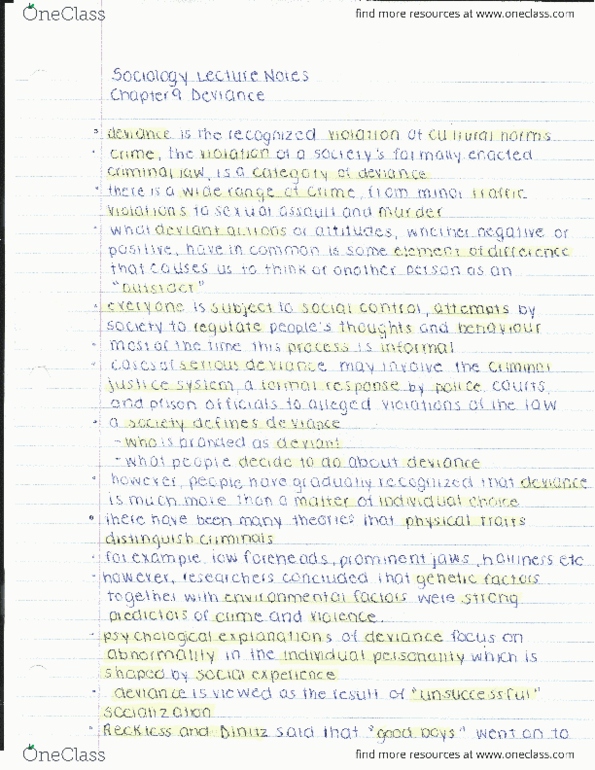 OneClass
find more resources at www.oneclass.com
Sociology Lecture Notes
Chapter 9 Deviance
• deviance is the recognized violation of cultural norms
• crime, the violation of a society's formally enacted
criminal law, is a category of deviance
• there is a wide range of crime, from minor traffic
violations to sexual assault and murder
• what deviant actions or attitudes, whether negative or
positive, have in common is some element of difference
that causes us to think of another person as an
"outsider"
• everyone is subject to social control, attempts by
society to regulate people's thoughts and behaviour
• most of the time this process is informal
• cases of serious deviance may involve the criminal
justice system, a formal response by police, courts,
and prison officials to alleged violations of the law
• a society defines deviance
- who is branded as deviant
- what people decide to do about deviance
• however, people have gradually recognized that deviance
is much more than a matter of individual choice
• there have been many theories that physical traits
distinguish criminals
• for example, low foreheads, prominent jaws, hairiness etc
• however, researchers concluded that genetic factors
together with environmental factors were strong
predictors of crime and violence.
• psychological explanations of deviance focus on
abnormality in the individual personality which is
shaped by social experience
• deviance is viewed as the result of "unsuccessful"
socialization
• Reckless and Dinitz said that "good boys" went on to
OneClass
find more resources at www.oneclass.com